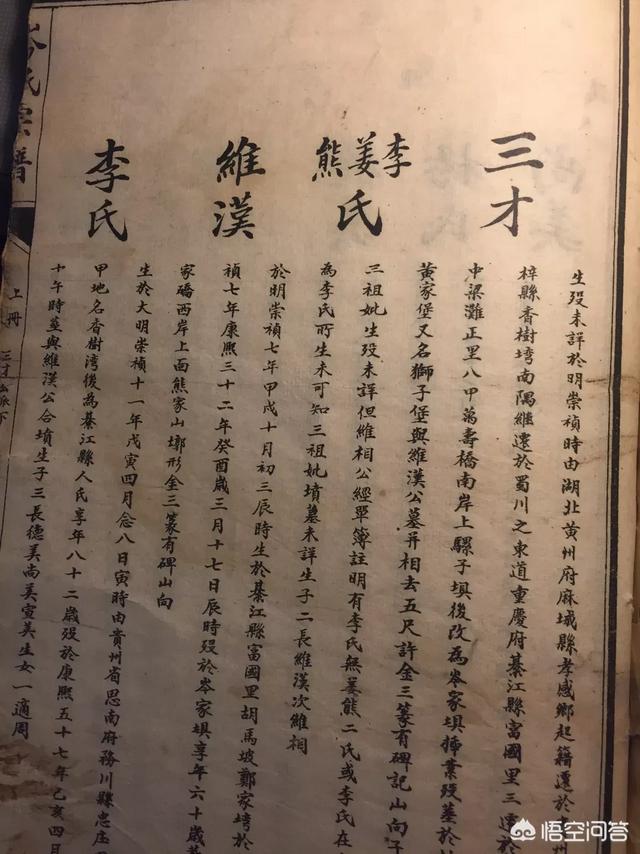 三才
生歿未詳於明崇禎時由湖北黃州府麻城縣孝感鄉起籍遷於貴州
梓縣香樹塆南隅繼遷於蜀川之東道重慶府綦江縣富國里三遷於
中梁灘正里八甲萬壽橋南岸上騾子埧後改為岑家埧插業歿墓於
黃家堡又名獅子堡與維漢公墓并相去五尺許金三篆有碑記山向子
李姜熊氏
三祖妣生歿未詳但維相公經單簿註明有李氏無姜熊二氏或李氏在
為李氏所生未可知三祖妣墳墓未詳生子二長維漢次維相
維漢
於明崇禎七年甲戌十月初三辰時生於綦江縣富國里胡馬坡鄭家塆於
禎七年康熙三十二年癸酉歲三月十七日辰時歿於岑家埧享年六十歲葬
家礄西岸上面熊家山墎形金三篆有碑山向
李氏
生於大明崇禎十一年戊寅四月念八日寅時由貴州省思南府務川縣忠庄
甲地名香樹湾後為綦江縣人氏享年八十二歲歿於康熙五十七年己亥四月
十午時葬與維漢公合墳生子三長德美尚美宣美生女一適周
岑氏宗譜
上冊
三才公派下
悟空问答